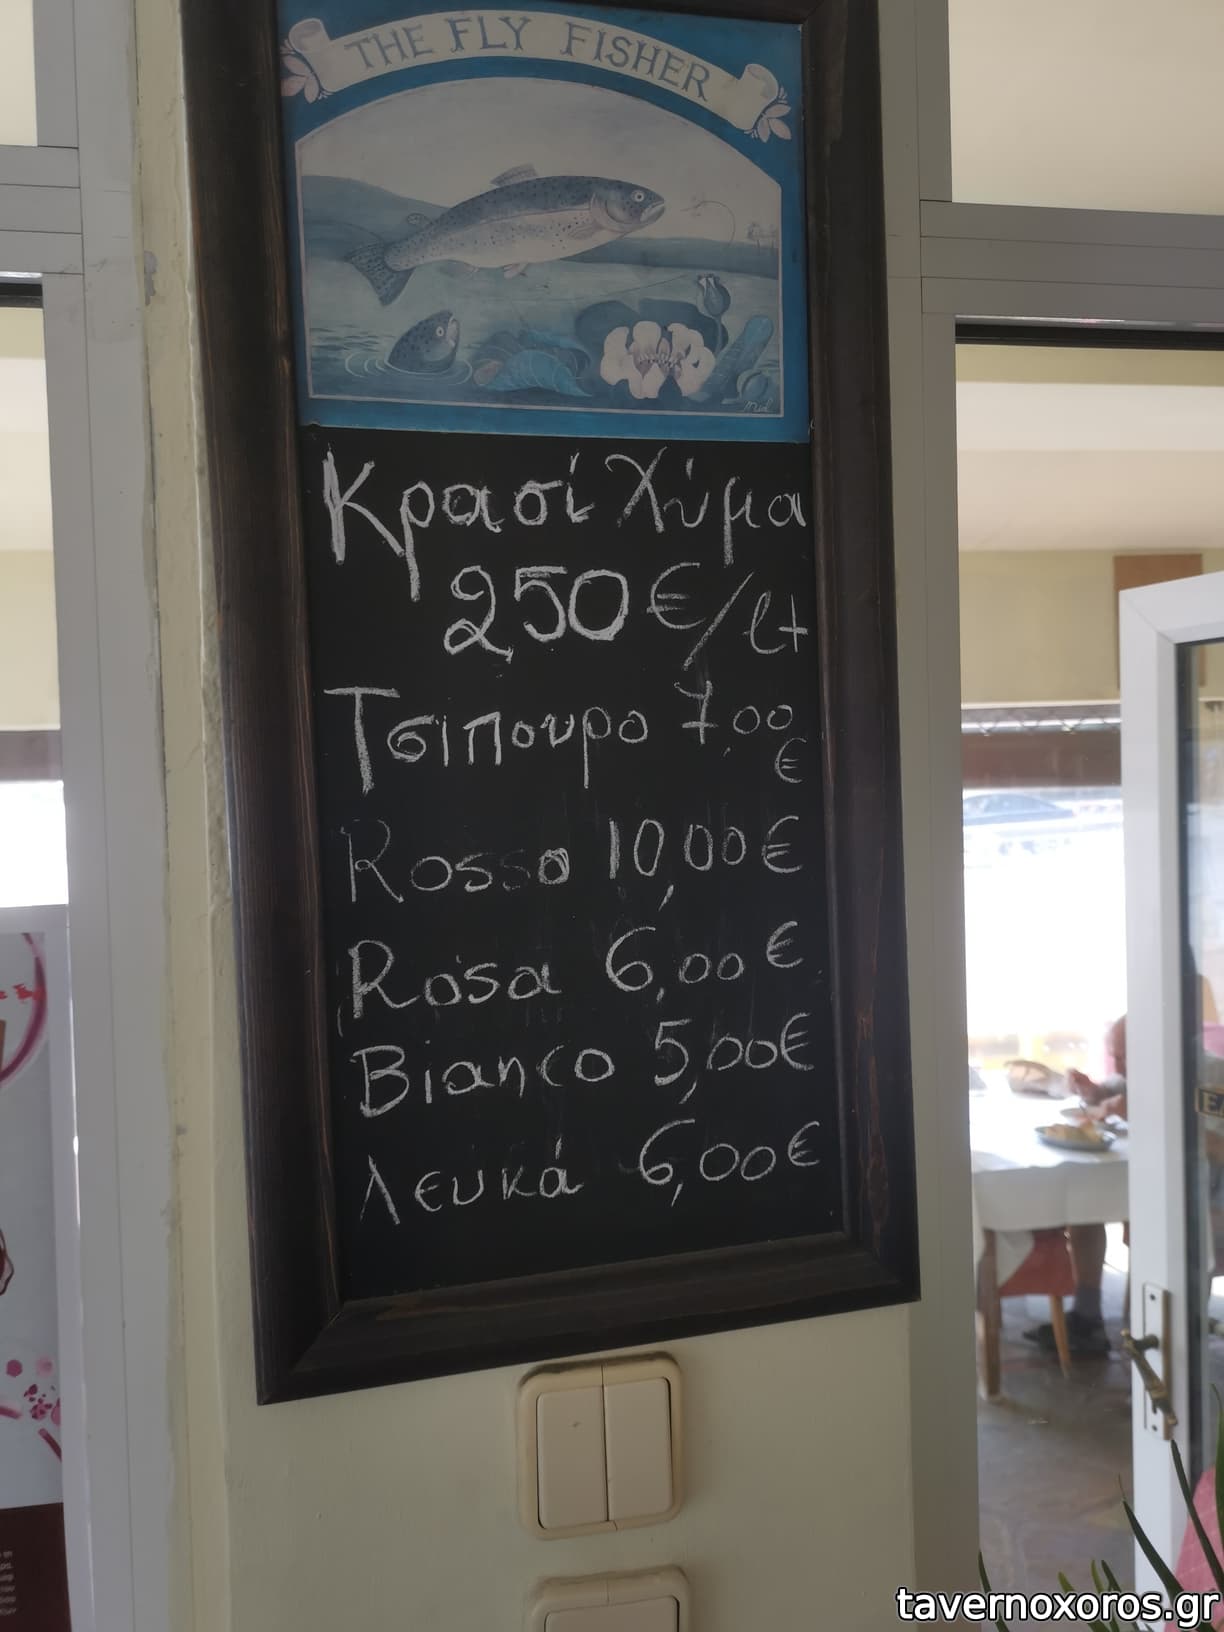 THE FLY FISHER
Κρασί Χύμα
2,50€/lt
Τσιπουρο 7,00
€
Rosso 10,00€
Rosa 6,00€
Bianco 5,00€
Λευκά 6,00€
tavernoxoros.gr